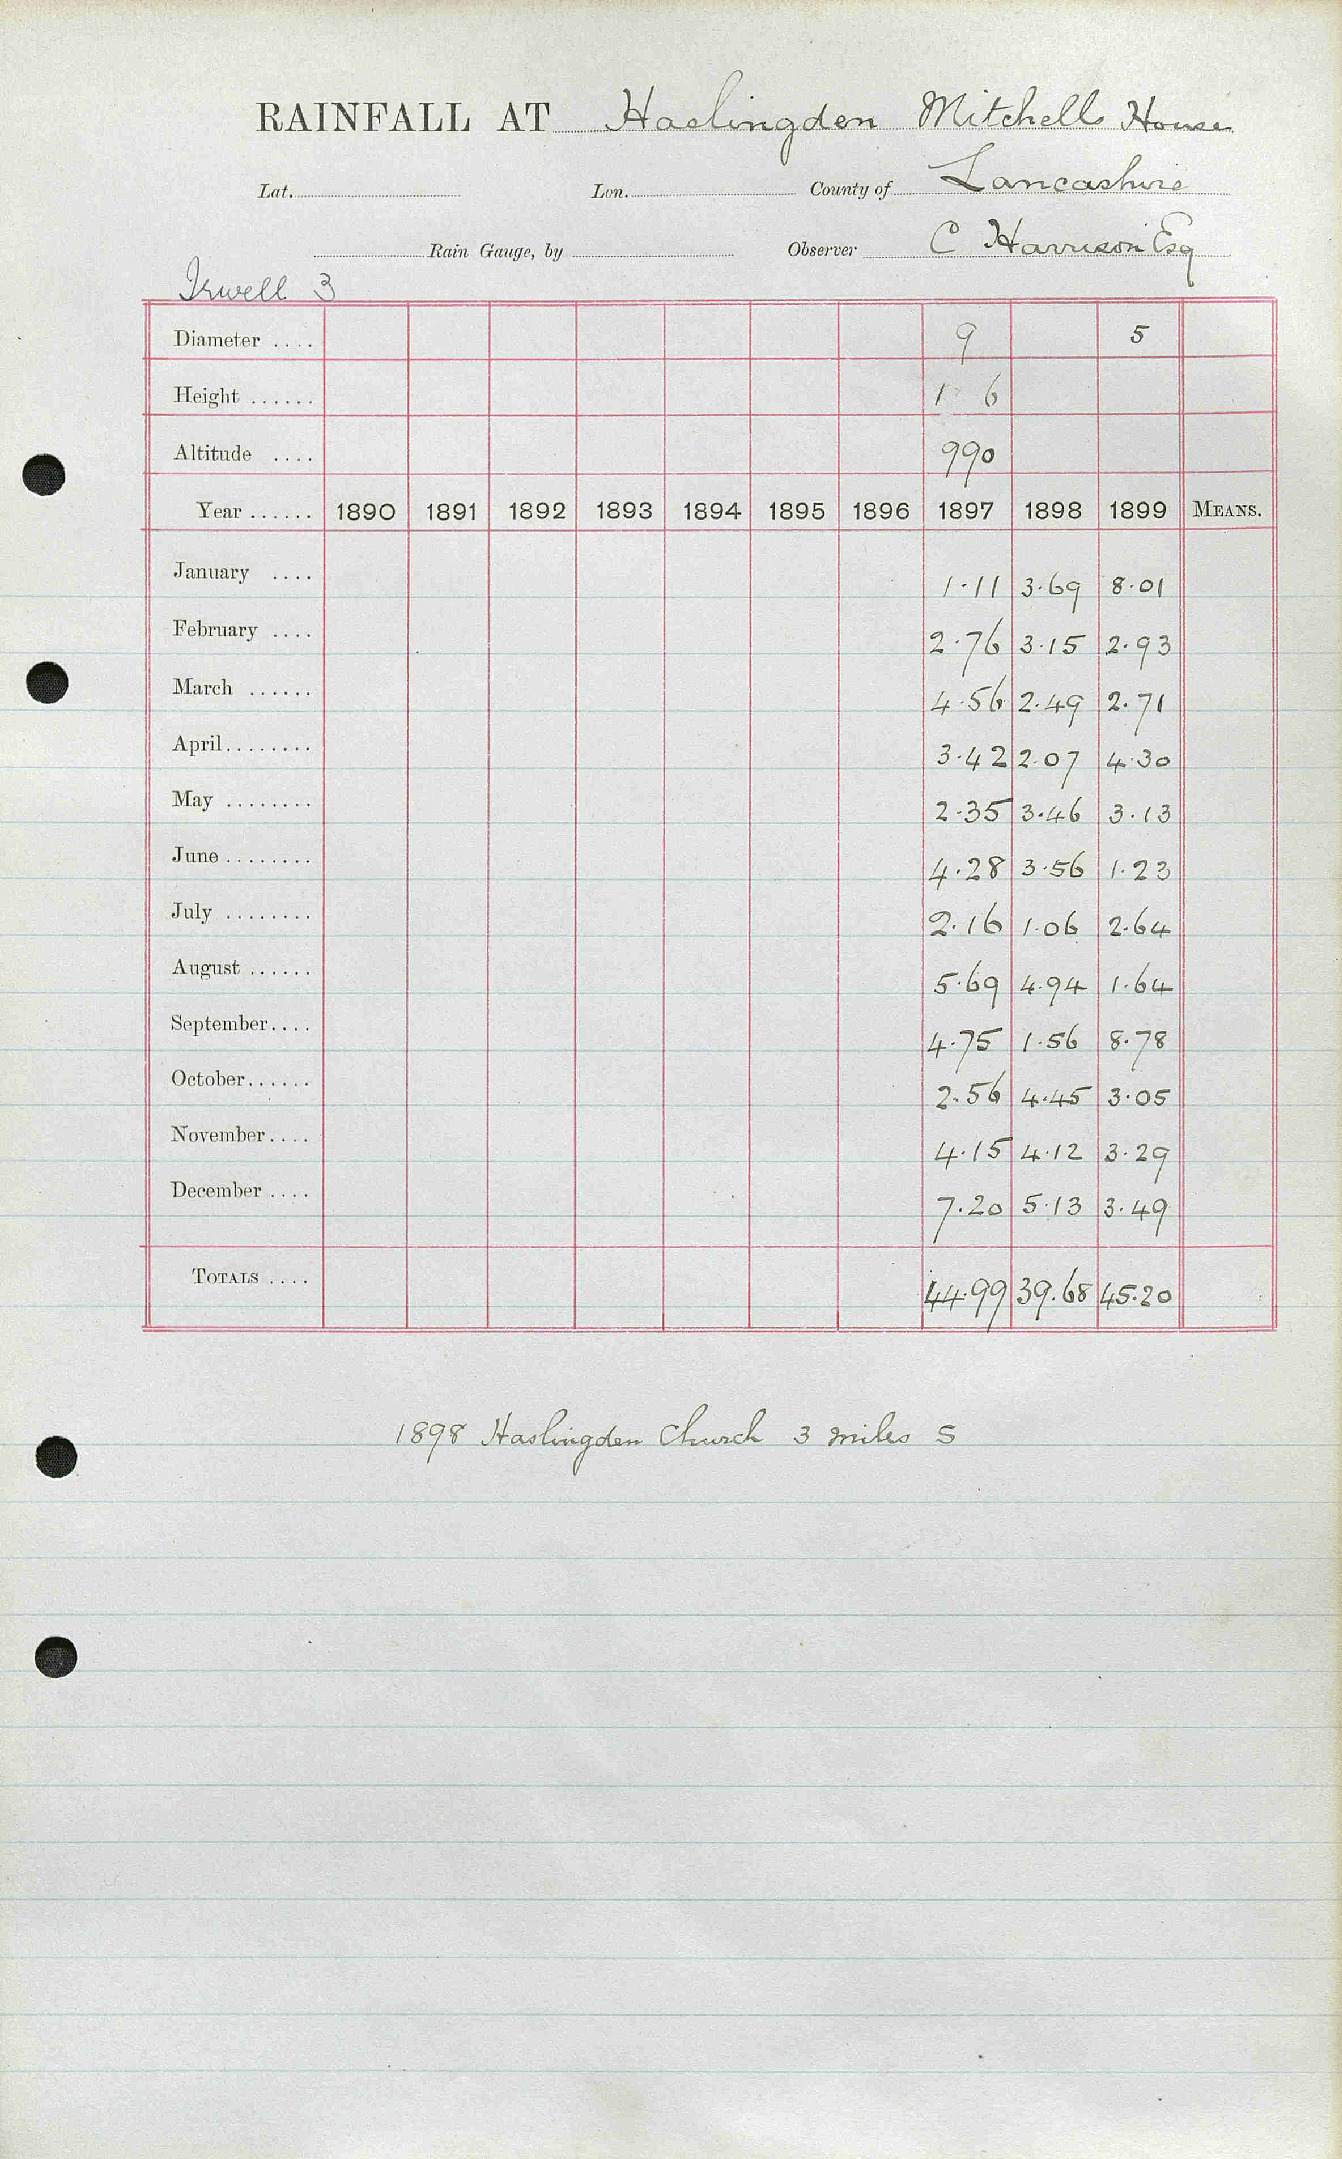 RAINFALL AT Haslingden Mitchell House
Lat. Lon. County of Lancashire
Rain Gauge, by Observer C Harrison Esq
Irwell 3
Diameter .... 9 5
Height ...... 1 6
Altitude .... 990
Year ...... 1890 1891 1892 1893 1894 1895 1896 1897 1898 1899 MEANS.
January .... 1.11 3.69 8.01
February .... 2.76 3.15 2.93
March ...... 4.56 2.49 2.71
April........ 3.42 2.07 4.30
May ........ 2.35 3.46 3.13
June ........ 4.28 3.56 1.23
July ........ 2.16 1.06 2.64
August ...... 5.69 4.94 1.64
September.... 4.75 1.56 8.78
October...... 2.56 4.45 3.05
November.... 4.15 4.12 3.29
December .... 7.20 5.13 3.49
TOTALS .... 44.99 39.68 45.20
1898 Haslingden Church 3 miles S